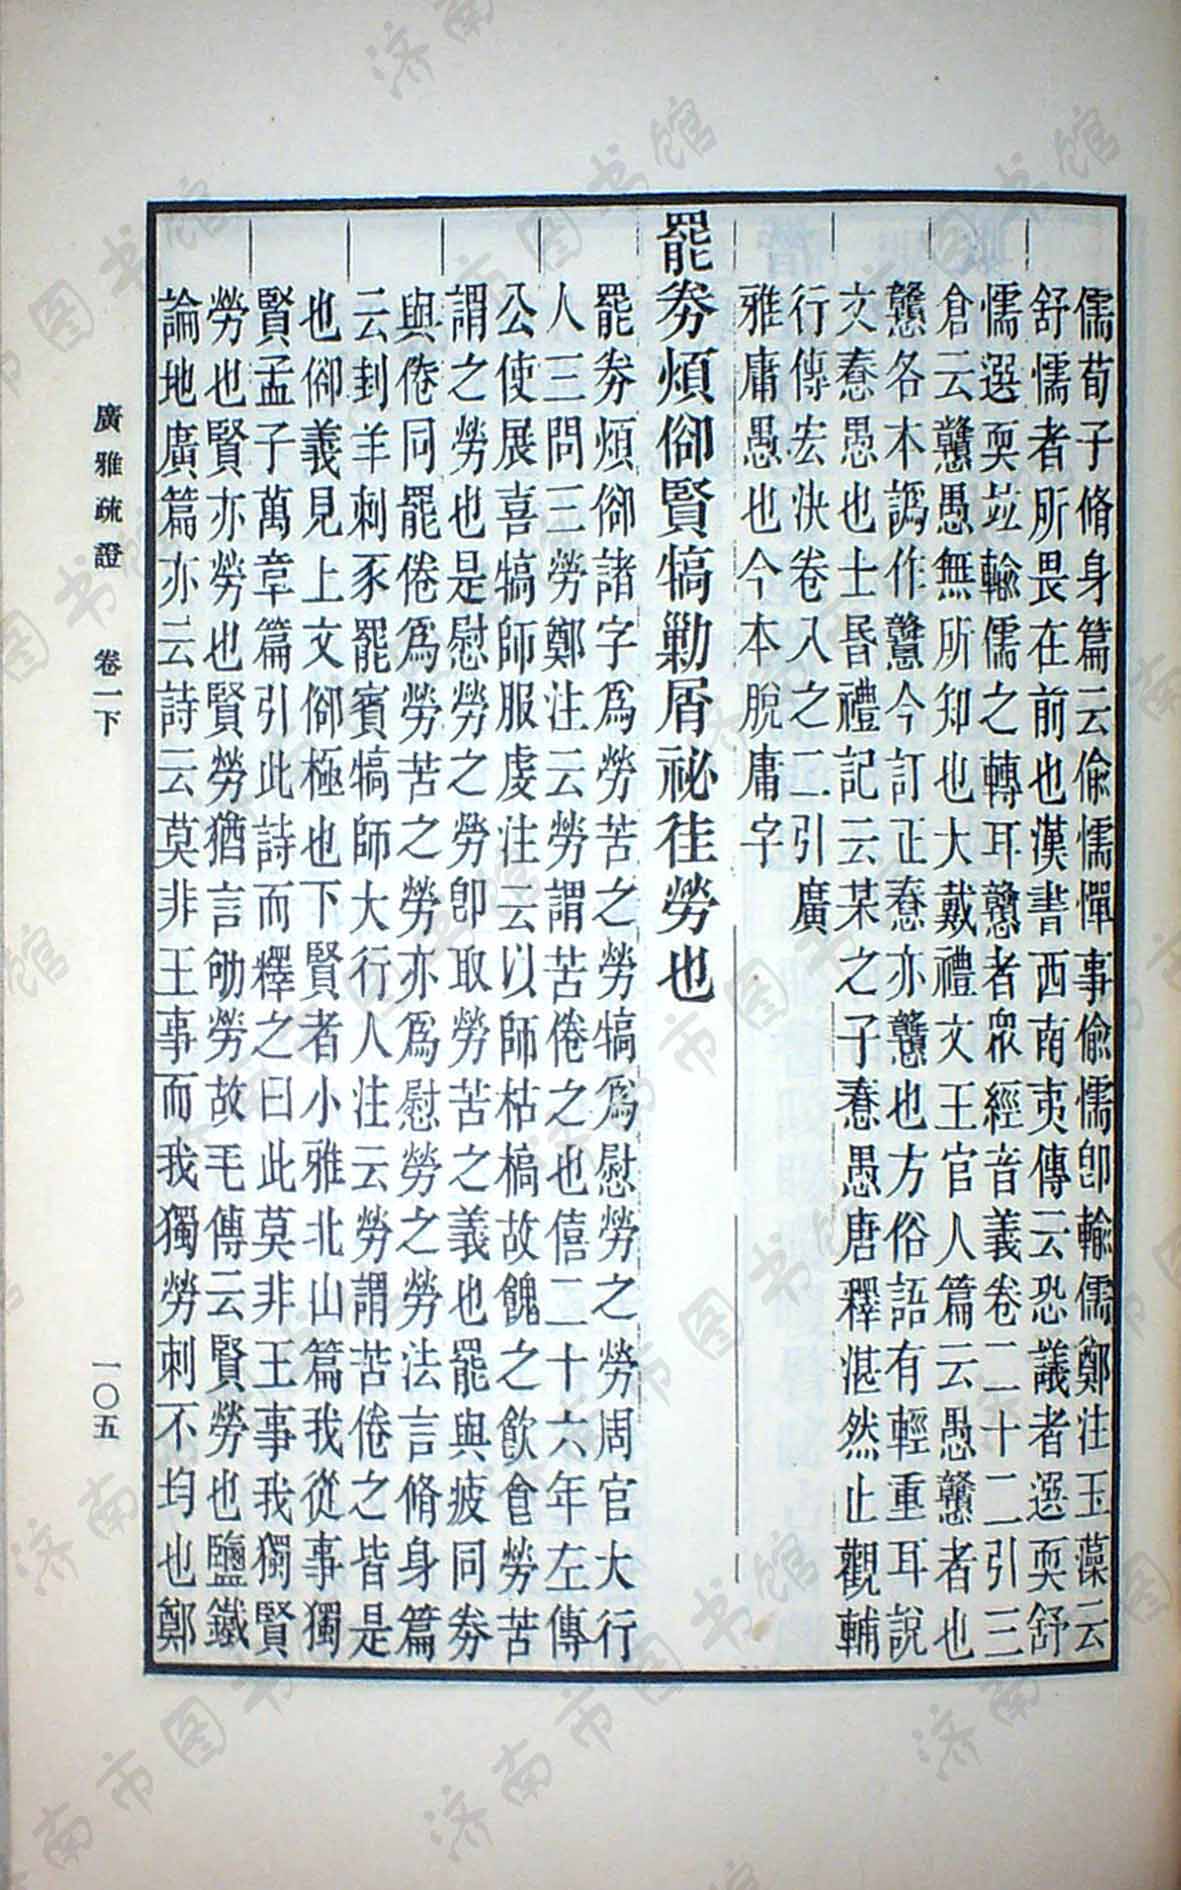 儒荀子脩身篇云偷懦憚事偷懦卽輸儒鄭注玉藻云
舒懦者所畏在前也漢書西南夷傳云恐議者選耎舒
懦選耎竝輸儒之轉耳戇者眾經音義卷二十二引三
倉云戇愚無所知也大戴禮文王官人篇云愚戇者也
戇各本譌作戅今訂正惷亦戇也方俗語有輕重耳說
文惷愚也士昏禮記云某之子惷愚唐釋湛然止觀輔
行傳宏決卷八之二引廣
雅庸愚也今本脫庸字
罷券煩御賢犒勦屑祕往勞也
罷券煩御諸字爲勞苦之勞犒爲慰勞之勞周官大行
人三問三勞鄭注云勞謂苦倦之也僖二十六年左傳
公使展喜犒師服虔注云以師枯槁故餽之飲食勞苦
謂之勞也是慰勞之勞卽取勞苦之義也罷與疲同券
與倦同罷倦爲勞苦之勞亦爲慰勞之勞法言脩身篇
云刲羊刺豕罷賓犒師大行人注云勞謂苦倦之皆是
也御義見上文御極也下賢者小雅北山篇我從事獨
賢孟子萬章篇引此詩而釋之曰此莫非王事我獨賢
勞也賢亦勞也賢勞猶言劬勞故毛傳云賢勞也鹽鐵
論地廣篇亦云詩云莫非王事而我獨勞刺不均也鄭
廣雅疏證 卷一下
一〇五
济南市图书馆